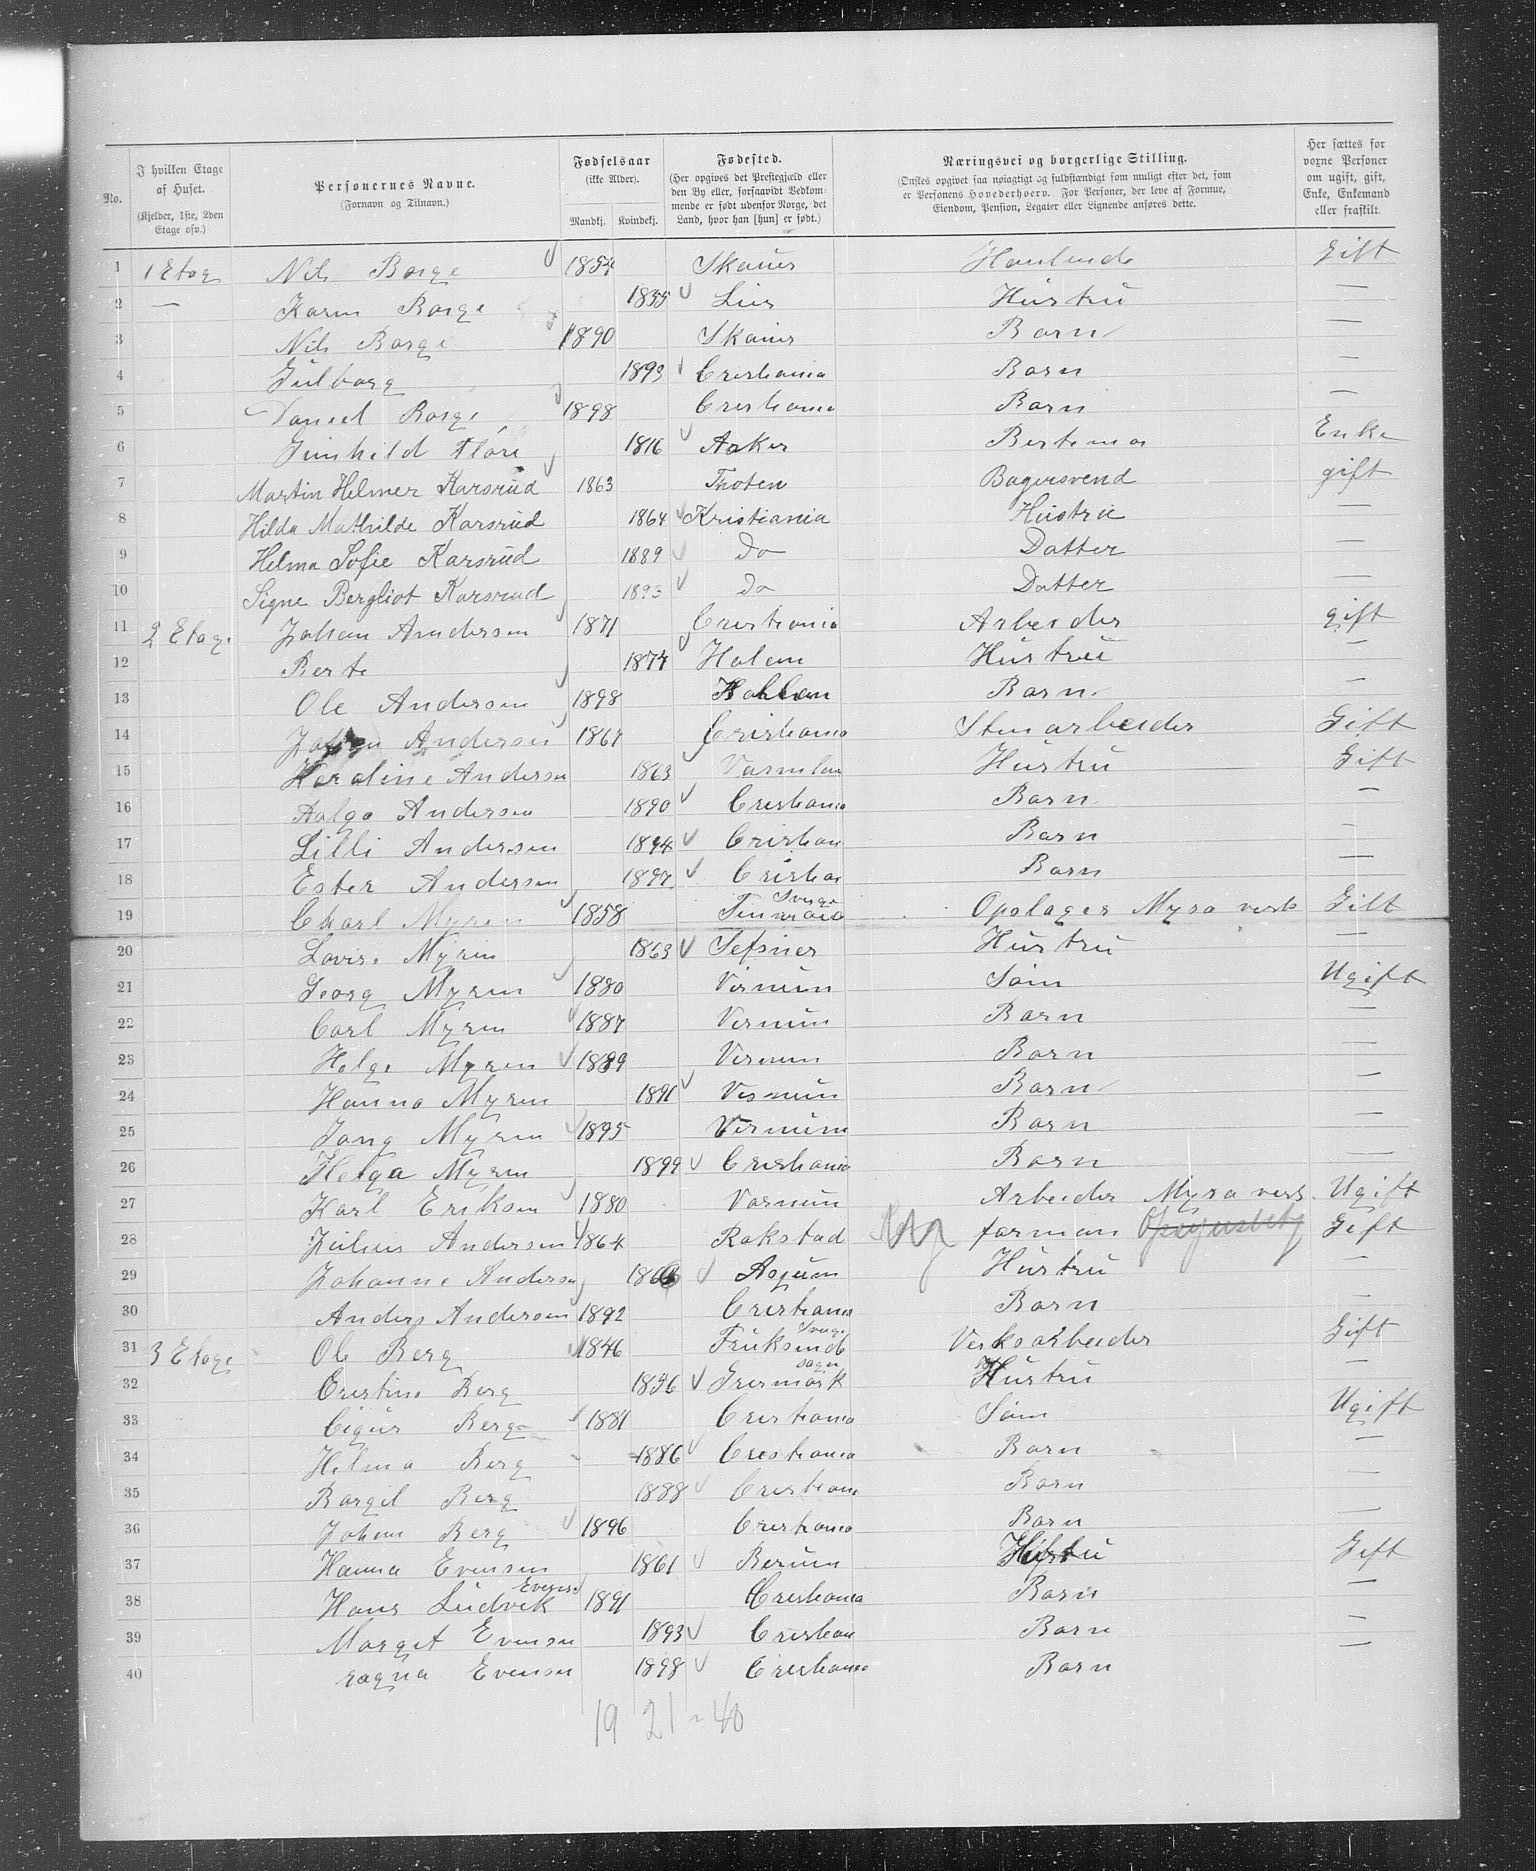 No.
I hvilken Etage af Huset. (Kjelder, 1ste, 2den Etage osv.)
Personernes Navne. (Fornavn og Tilnavn.)
Fødselsaar (ikke Alder). Mandkj. Kvindekj.
Fødested. (Her opgives det Prestegjæld eller den By eller, forsaavidt Vedkommende er født udenfor Norge, det Land, hvor han [hun] er født.)
Næringsvei og borgerlige Stilling. (Ønskes opgivet saa nøiagtigt og fuldstændigt som muligt efter det, som er Personens Hovederhverv. For Personer, der leve af Formue, Eiendom, Pension, Legater eller Lignende anføres dette.
Her sættes for voxne Personer om ugift, gift, Enke, Enkemand eller fraskilt.
1 1 Etag Nils Borge 1854 Skauer Gift
2 — Karen Borge 1855 Lier Hustru —
3 Nils Borge 1890 Skauer Barn —
4 Gulborg 1893 Cristiania Barn —
5 Daniel Borge 1898 Cristiania Barn —
6 Gunhild Flöre 1816 Asker Bestemor Enke
7 Martin Helmer Karsrud 1863 Thoten Bagersvend gift
8 Hilda Mathilde Karsrud 1864 Kristiania Hustru —
9 Helma Sofie Karsrud 1889 do Datter —
10 Signe Bergliot Karsrud 1893 do Datter —
11 2 Etage Johan Andersen 1871 Cristiania Arbeider gift
12 Berte 1874 Holem Hustru —
13 Ole Andersen 1898 Barn —
14 Johan Andersen 1867 Cristiania Stenarbeider Gift
15 Karoline Andersen 1863 Varmlan Hustru Gift
16 Aalga Andersen 1890 Cristiania Barn —
17 Lilli Andersen 1894 Cristian Barn —
18 Ester Andersen 1897 Cristia Barn —
19 Charl Myren 1858 Sverge Oplager Myra verk Gift
20 Lovise Myren 1863 Sefsner Hustru —
21 Georg Myren 1880 Vernum Søn Ugift
22 Carl Myren 1887 Vernum Barn —
23 Helge Myren 1889 Vernum Barn —
24 Hanna Myren 1891 Vernum Barn —
25 Jong Myren 1895 Vernum Barn —
26 Helga Myren 1899 Cristiania Barn —
27 Karl Eriksen 1880 Varnum Arbeider Myra verk Ugift
28 Julius Andersen 1864 Rakstad forman Gift
29 Johanne Andersen 1866 Hustru —
30 Anders Andersen 1892 Cristiania Barn —
31 3 Etage Ole Berg 1846 Sverge Verksarbeider Gift
32 Cristine Berg 1856 Gresmark sogn Hustru —
33 Cigur Berg 1881 Cristiania Søn Ugift
34 Helma Berg 1886 Cristiania Barn —
35 Borgil Berg 1888 Cristiania Barn —
36 Johan Berg 1896 Cristiania Barn —
37 Hanna Evensen 1861 Berum Hustru Gift
38 Hans Ludvik Evensen 1891 Cristiania Barn —
39 Morget Evensen 1893 Cristian Barn —
40 ragna Evensen 1898 Cristiania Barn —
19 21 - 40